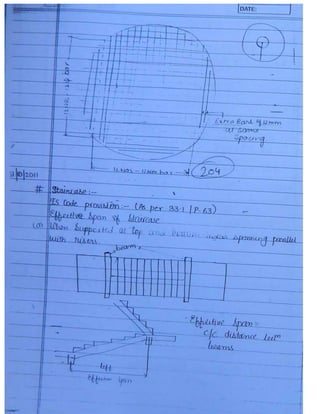 DATE:
12 NOS - 12 Φ BAR
Extra Bars of 12mm
at same
spacing
12 NOS - 12mm bars
204
# Staircase :-
IS code provision:- (As per 33.1 / P. 63)
Effective Span of Staircase
(a) When supported at top and bottom risers spanning parallel
with risers.
beams
Effective Span =
c/c distance betⁿ
beams
leff
Effective Span